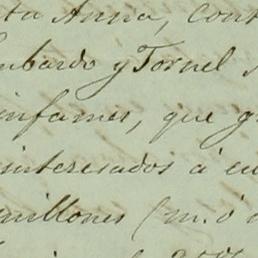 ta Anna, cont
mbardo y Tornel
infames, que g
interesados á cu
millones (m. ó